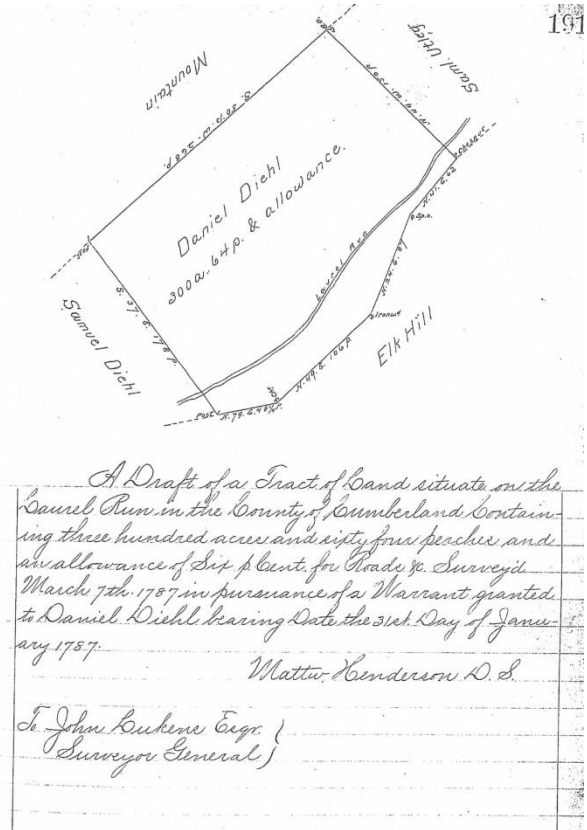 191
Mountain
Saml. Utley
S. 50½ W. 268 p.
N. 44. W. 130 p
Daniel Diehl
300a. 64p. & allowance.
Laurel Run
N. 41. E. 62
N. 24. E. 87
Samuel Diehl
S. 37. E. 178 p.
Elk Hill
N. 49. E. 106 p
Post
N. 79. E. 40
A Draft of a Tract of Land situate on the
Laurel Run in the County of Cumberland Contain-
ing three hundred acres and sixty four perches and
an allowance of Six p Cent. for Roads &c. Survey'd
March 7th. 1787 in pursuance of a Warrant granted
to Daniel Diehl bearing Date the 31st. Day of Janu-
ary 1787.
Mattw. Henderson D. S.
To John Lukene Esqr. }
Surveyor General }